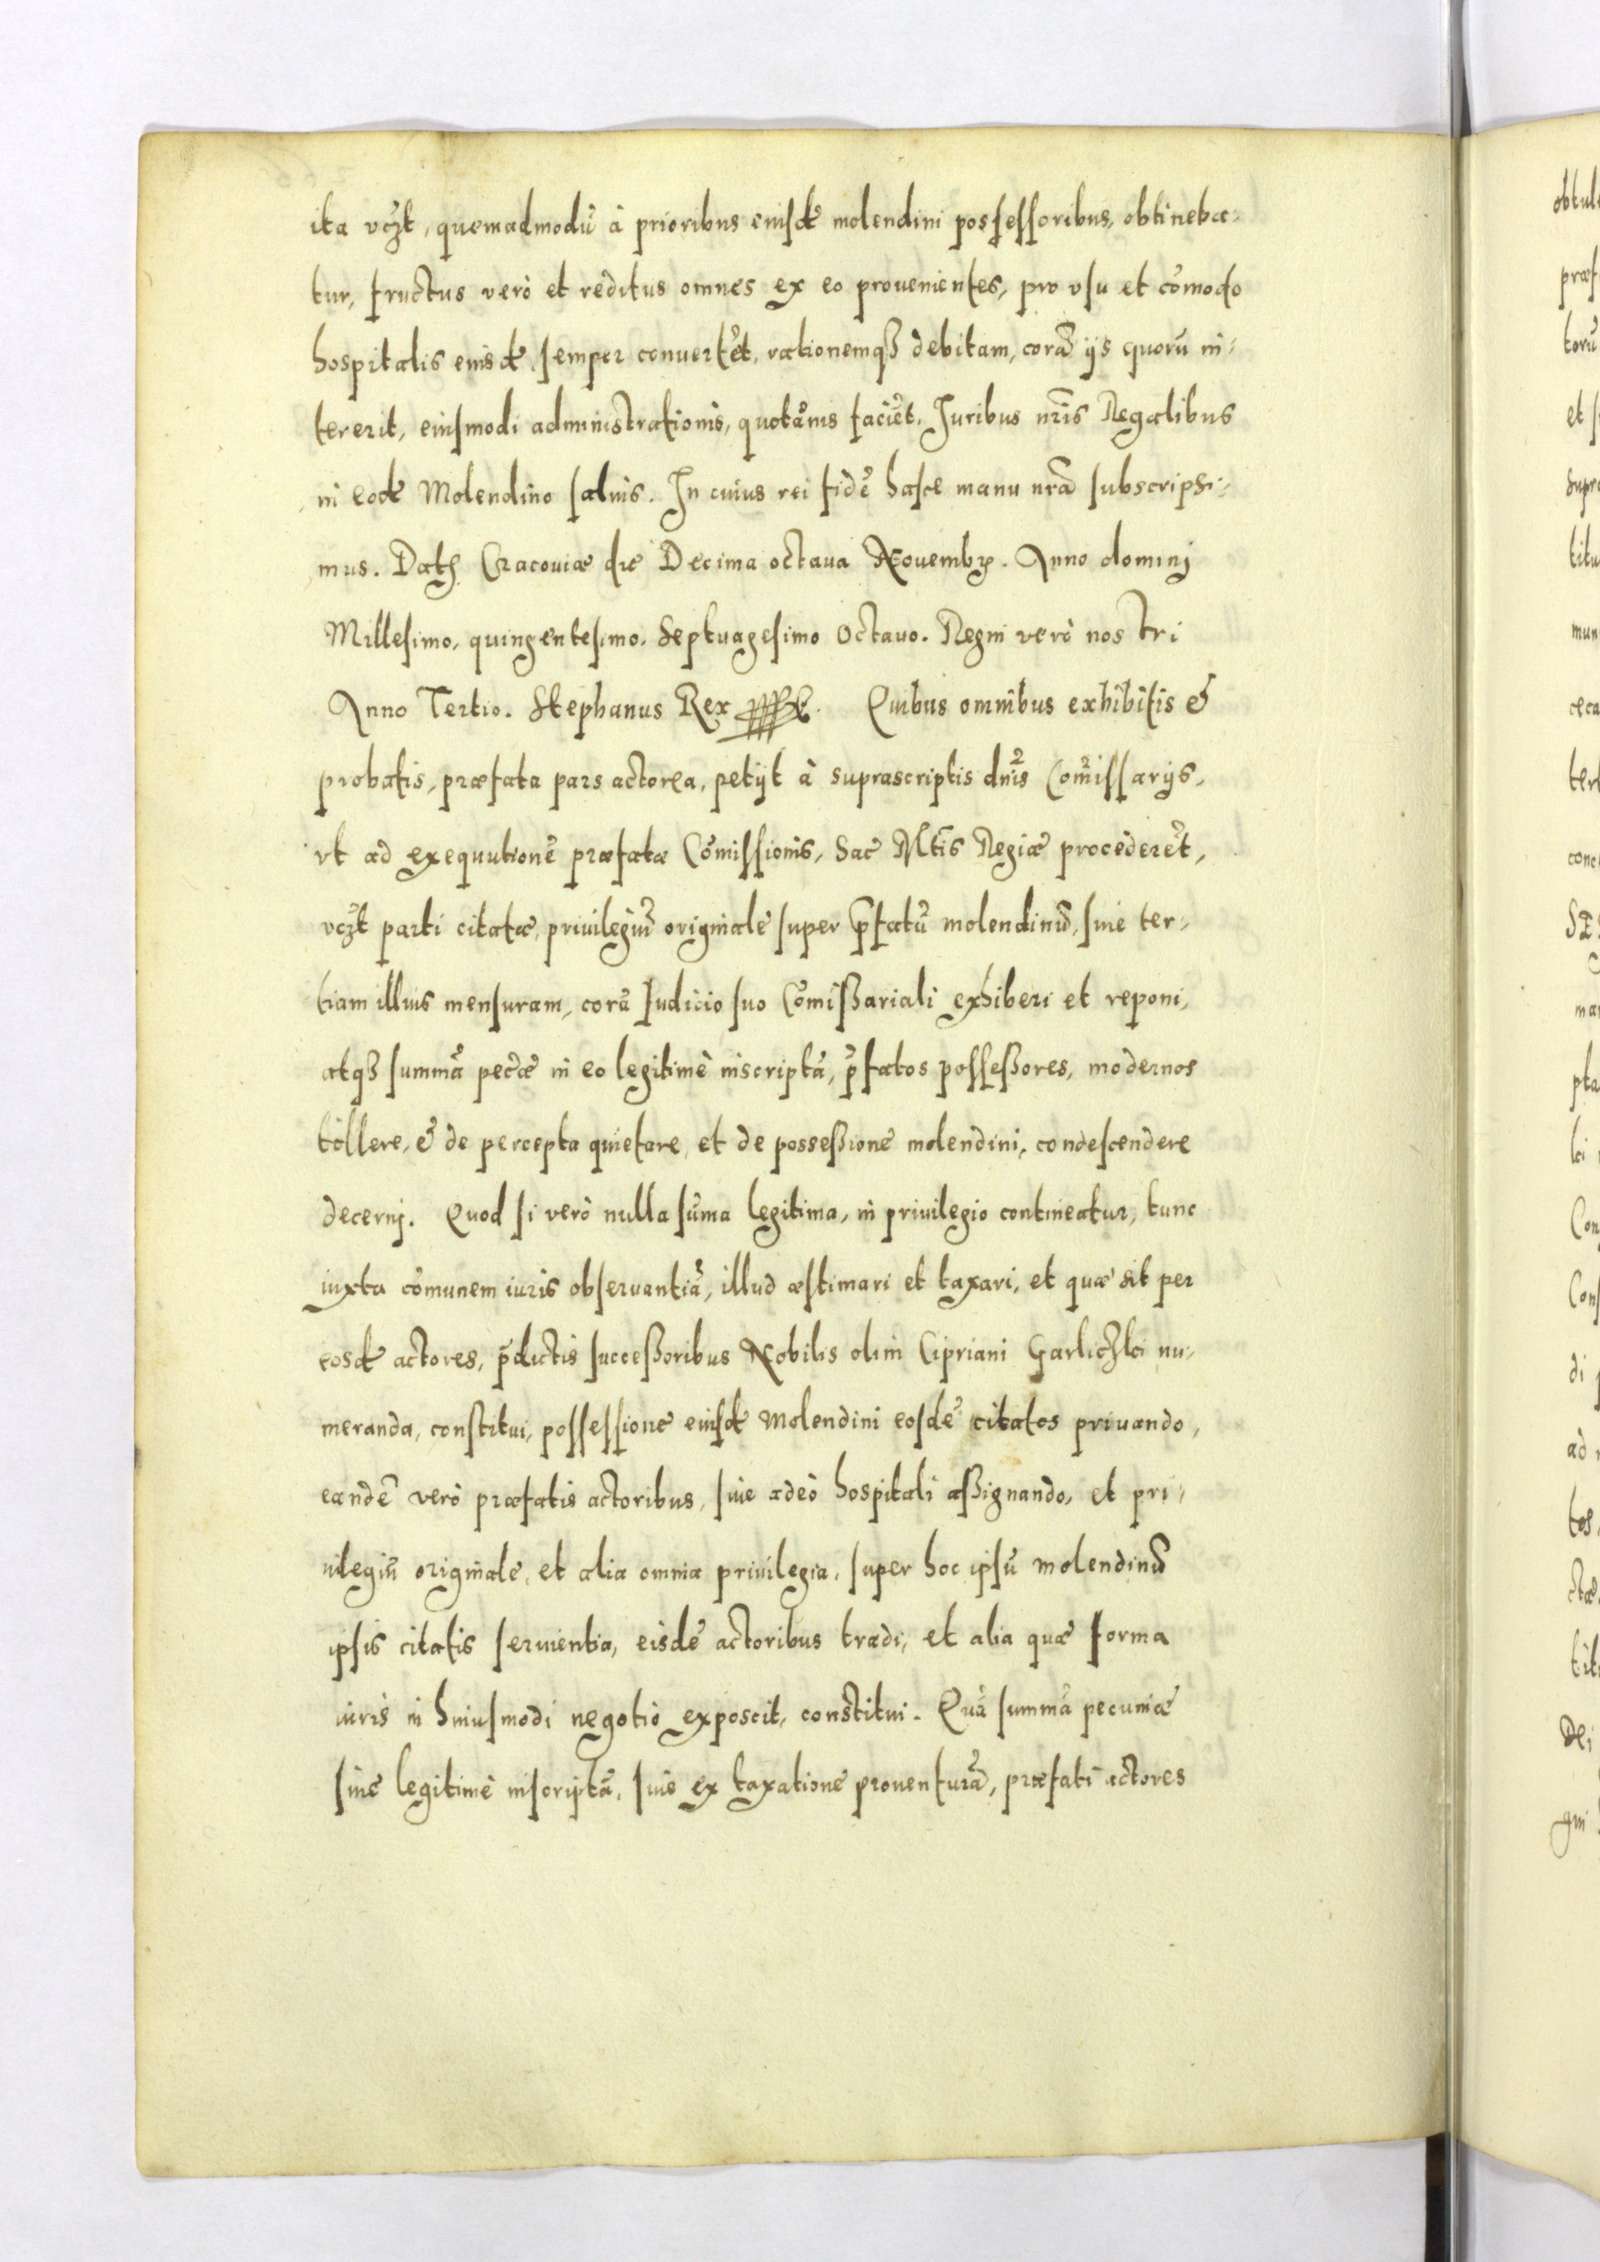 ita vczt, quemadmodũ à prioribus eiusdẽ molendini possessoribus, obtineba-
tur, fructus verò et reditus omnes ex eo prouenientes, pro vsu et cõmodo
hospitalis eiusdẽ semper conuertẽt, rationemq₃ debitam, corã ijs quorũ in-
tererit, eiusmodi administrationis, quotãnis faciẽt. Juribus nr̃is Regalibus
in eodẽ Molendino saluis. In cuius rei fidẽ hasce manu nr̃a subscripsi-
mus. Dat. Cracouiæ die Decima octaua Nouembr. Anno dominj
Millesimo, quingentesimo, Septuagesimo Octauo. Regni verò nostri
Anno Tertio. Stephanus Rex Quibus omnibus exhibitis &
probatis, præfata pars actorea, petijt à suprascriptis dnĩs Com̃issarijs,
vt ad exequutionẽ præfatæ Cõmissionis, Sac̃ Mt̃is Regiæ procederẽt,
vczt parti citatæ, priuilegiũ originale super p̃fatũ molendinũ, siue ter-
tiam illius mensuram, corã Judicio suo Cõmißariali exhiberi et reponi,
atq₃ summã pec̃æ in eo legitimè inscriptã, p̃fatos possessores, modernos
tollere, & de percepta quietare, et de possessione molendini, condescendere
decernj. Quod si verò nulla sũma legitima, in priuilegio contineatur, tunc
iuxta cõmunem iuris obseruantiã, illud æstimari et taxari, et quæ sit per
eosdẽ actores, p̃dictis successoribus Nobilis olim Cipriani Garliczki nu-
meranda, constitui, possessione eiusdẽ Molendini eosdẽ citatos priuando,
eandẽ verò præfatis actoribus, siue adeò hospitali aßignando, et pri-
uilegiũ originale, et alia omnia priuilegia, super hoc ipsũ molendinũ
ipsis citatis seruientia, eisdẽ actoribus tradi, et alia quæ forma
iuris in huiusmodi negotio exposcit, constitui. Quã summã pecuniæ
siue legitimè inscriptã, siue ex taxatione prouenturã, præfati actores